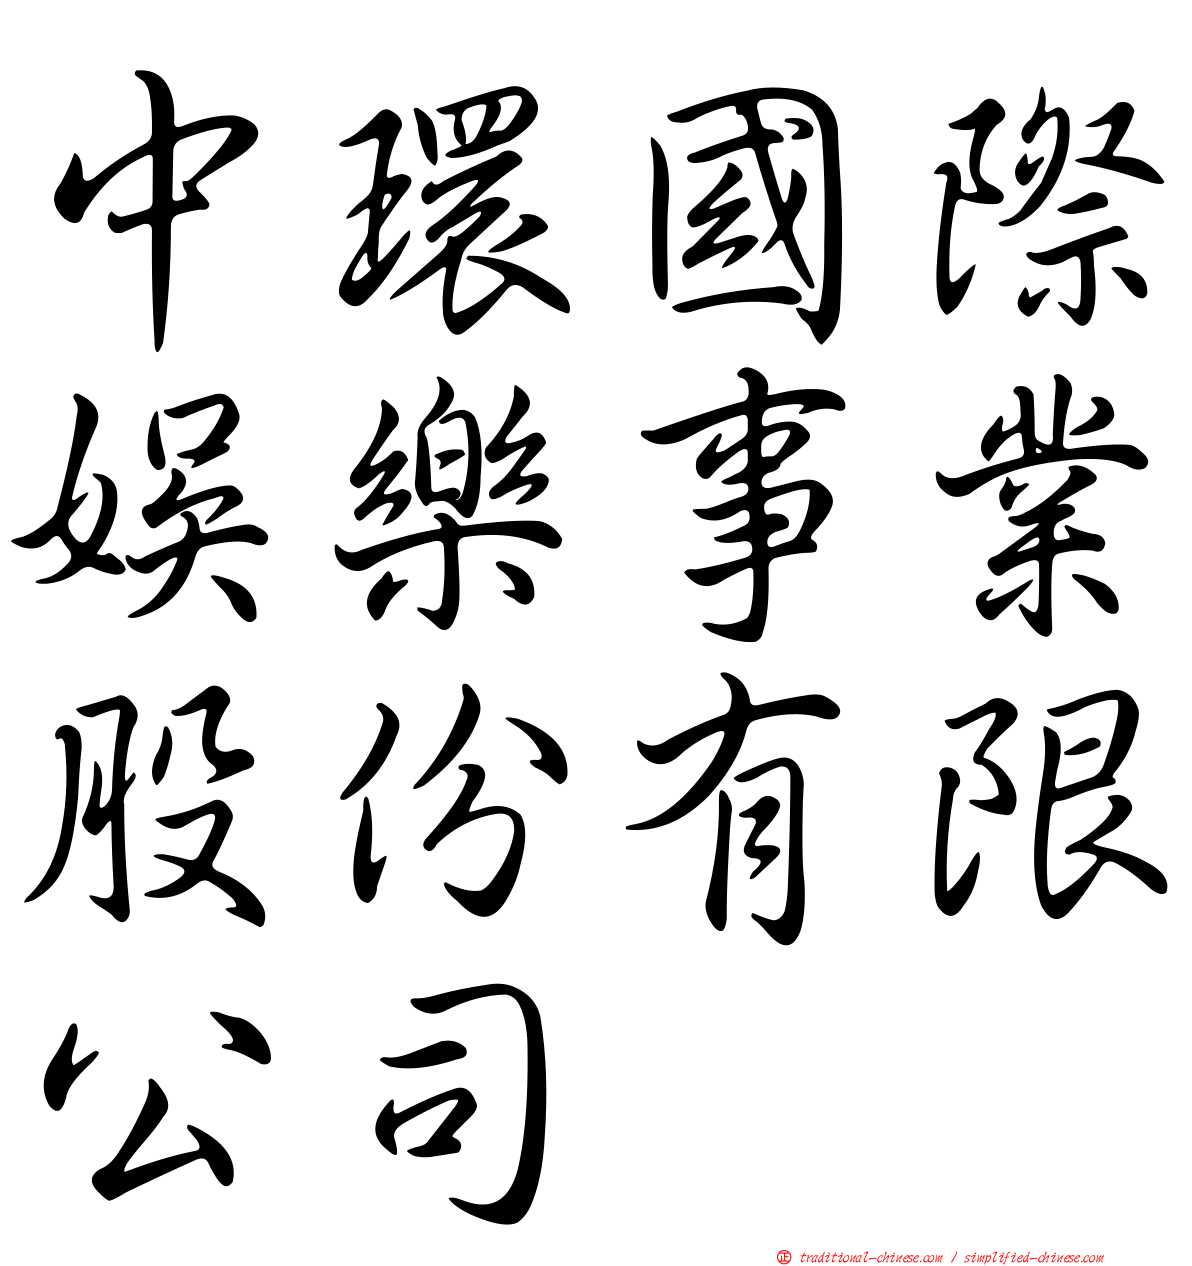 中環國際
娛樂事業
股份有限
公司
正 traditional-chinese.com / simplified-chinese.com